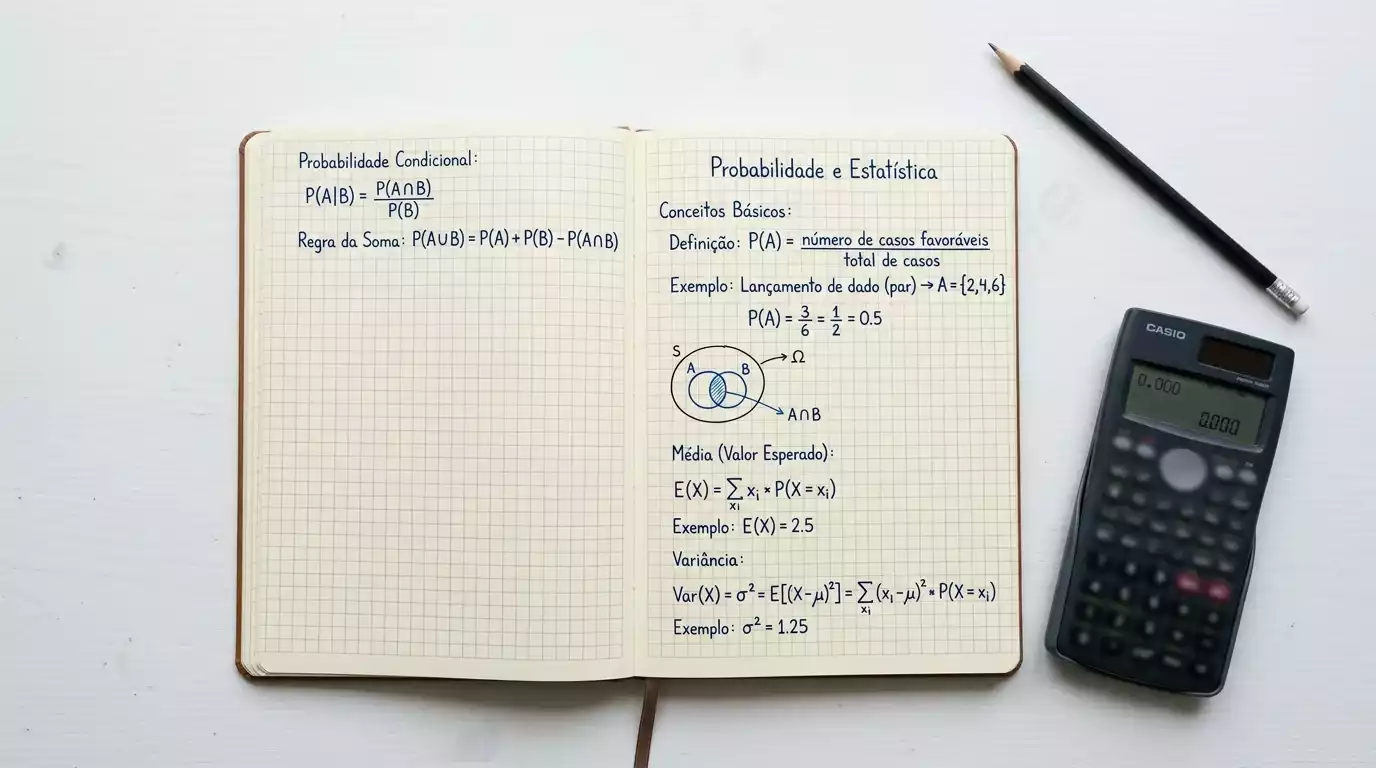 Probabilidade Condicional:
P(A|B) = P(A∩B)
P(B)
Regra da Soma: P(A∪B) = P(A) + P(B) - P(A∩B)
Probabilidade e Estatística
Conceitos Básicos:
Definição: P(A) = número de casos favoráveis
total de casos
Exemplo: Lançamento de dado (par) → A = {2,4,6}
P(A) = 3/6 = 1/2 = 0.5
S
A B
Ω
A∩B
Média (Valor Esperado):
E(X) = ∑xᵢ xᵢ * P(X = xᵢ)
Exemplo: E(X) = 2.5
Variância:
Var(X) = σ² = E[(X-μ)²] = ∑xᵢ (xᵢ-μ)² * P(X = xᵢ)
Exemplo: σ² = 1.25
CASIO
0.000
0.000